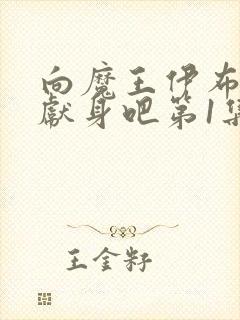 向魔王伊布
献身吧第1集
王金籽